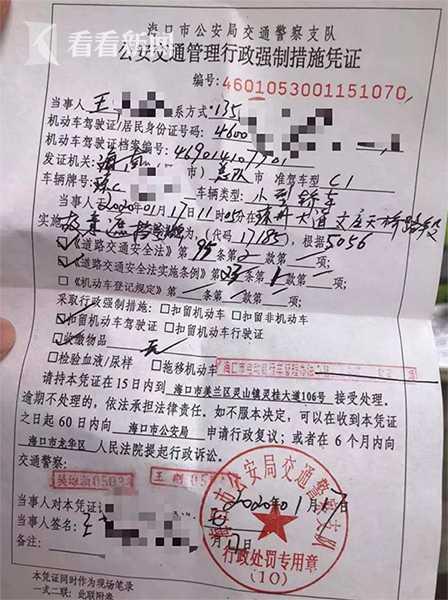 看看新闻
海口市公安局交通警察支队
公安交通管理行政强制措施凭证
编号:4601053001151070
当事人 王 系方式:135
机动车驾驶证/居民身份证号码:4600
机动车驾驶证档案编号:469014107701
发证机关:海南 市 准驾车型 C1
车辆牌号:琼C 车辆类型:小型轿车
当事人于2020年01月17日11时05分在琼州大道文庄天桥路段
实施故意遮挡号牌 为,(代码 17185),根据5056
☑《道路交通安全法》第95条第2款第 项;
☑《道路交通安全法实施条例》第 条第1款第 项;
□《机动车登记规定》第 条第 款第 项;
采取行政强制措施:□扣留机动车□扣留非机动车
□扣留机动车驾驶证 □扣留机动车行驶证
☑收缴物品 无
□检验血液/尿样 □拖移机动车
请持本凭证在15日内到 海口市美兰区灵山镇灵桂大道106号 接受处理。
逾期不处理的,依法承担法律责任。如不服本决定,可以在收到本凭证
之日起 60日内向 海口市公安局 申请行政复议;或者在 6 个月内向
海口市龙华区 人民法院提起行政诉讼。
交通警察:
王刚
当事人对本凭证
2020年01月17日
当事人签名:王
备注:
海口市公安局交通警察支队
行政处罚专用章
(10)
本凭证同时作为现场笔录
一式二联:此联附卷